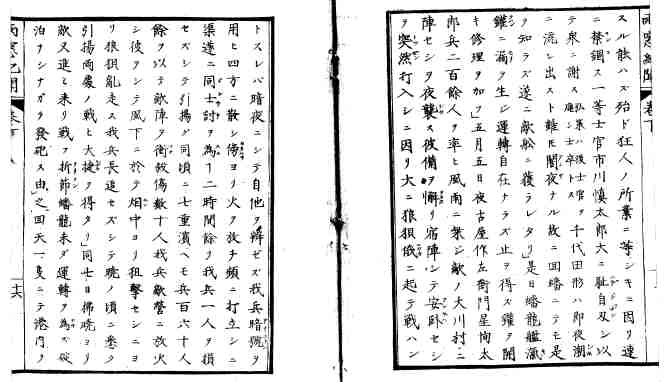 スル能ハズ殆ド狂人ノ所業ニ等シキニ因リ速
ニ禁錮ス一等士官市川慎太郎大ニ耻自刃シ以
テ衆ニ謝ス
千代田形ハ即夜潮
ニ流シ出スト雖モ闇夜ナル故ニ回
ヲ知ラズ遂ニ敵船ニ獲ラレタリ」是日蟠龍艦
鑵ニ漏ヲ生シ運轉自在ナラズ止ヲ得ズ鑵ヲ開
キ修理ヲ加フ」五月五日夜古屋作左衛門星恂太
郎兵二百餘人ヲ率ヒ風雨ニ乗シ敵ノ大川村ニ
陣セシヲ夜襲ス彼備ヲ懈リ宿陣シテ安臥セシ
ヲ突然打入シニ因リ大ニ狼狽
トスレバ暗夜ニシテ自他ヲ辨ゼズ我兵暗號ヲ
用ヒ四方ニ散シ傍ヨリ火ヲ放チ頻ニ打立シニ
渠遂ニ同士討ヲ為
二時間餘リ我兵一人ヲ損
セズシテ引揚グ同頃ニ七重濱ヘモ兵百六十人
餘ヲ以テ敵陣ヲ衝
傷數十人我兵敵營ニ放火
シ彼ヲシテ風下ニ於テ烟中ヨリ狙撃セシニヨ
リ狼狽亂走ス我兵長追セズシテ曉ノ頃ニ悉ク
引揚両處ノ戰ヒ大捷ヲ得タリ」同七日拂曉ヨリ
敵又進ミ来リ戰フ折節蟠龍未ダ運轉ヲ為ズ碇
泊ヲシナガラ發砲ス
回天一隻ニテ港内ヲ
十六